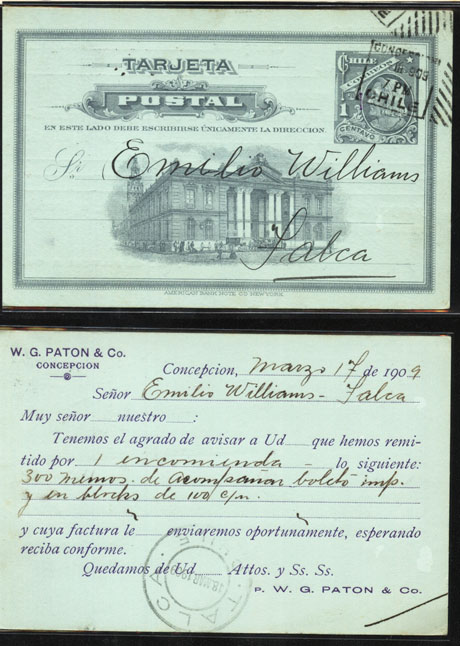 TARJETA
POSTAL
EN ESTE LADO DEBE ESCRIBIRSE ÚNICAMENTE LA DIRECCION.
CHILE
CORREOS
1
CENTAVO
7 PM
CHILE
Sr. Emilio Williams
Talca
AMERICAN BANK NOTE CO. NEW YORK.
W. G. PATON & Co.
CONCEPCION
Concepcion, Marzo 17 de 1909
Señor Emilio Williams - Talca
Muy señor nuestro :
Tenemos el agrado de avisar a Ud que hemos remi-
tido por 1 encomienda - lo siguiente:
300 memos. de acompañar boleto imp.
y en blocks de 100 c/u.
y cuya factura le enviaremos oportunamente, esperando
reciba conforme.
Quedamos de Ud Attos. y Ss. Ss.
P. W. G. PATON & Co.
TALCA
18 MAR 190